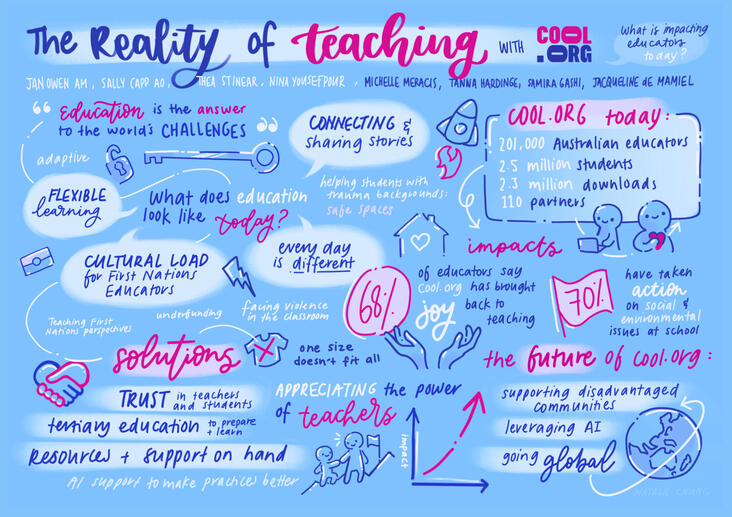 The Reality of teaching WITH COOL.ORG
What is impacting
educators
today?
JAN OWEN AM, SALLY CAPP AO, THEA STINEAR, NINA YOUSEFPOUR, MICHELLE MERACIS, TANNA HARDINGE, SAMIRA GASHI, JACQUELINE de MAMIEL
“ Education is the answer
to the world's CHALLENGES ”
adaptive
CONNECTING &
sharing stories
helping students with
trauma backgrounds:
safe spaces
COOL.ORG today:
201,000 Australian educators
2.5 million students
2.3 million downloads
110 partners
FLEXIBLE
learning
What does education
look like today?
CULTURAL LOAD
for First Nations
Educators
every day
is different
Teaching First
Nations perspectives
underfunding
facing violence
in the classroom
one size
doesn't fit all
impacts
68%
of educators say
Cool.org has brought
joy back to
teaching
70%
have taken
action
on social &
environmental
issues at school
solutions
TRUST in teachers
and students
tertiary education to prepare
+ learn
Resources + support on hand
AI support to make practices better
APPRECIATING the power
of teachers
impact
the future of cool.org:
supporting disadvantaged
communities
leveraging AI
going global